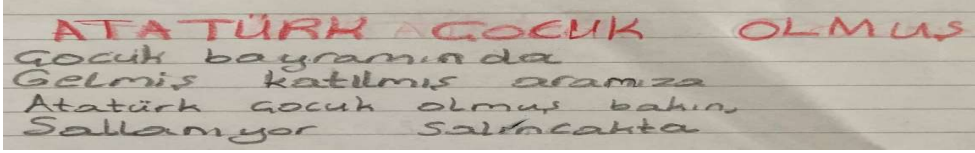 ATATÜRK ÇOCUK OLMUŞ
Çocuk bayramında
Gelmiş katılmış aramıza
Atatürk çocuk olmuş bakın,
Sallanıyor salıncakta